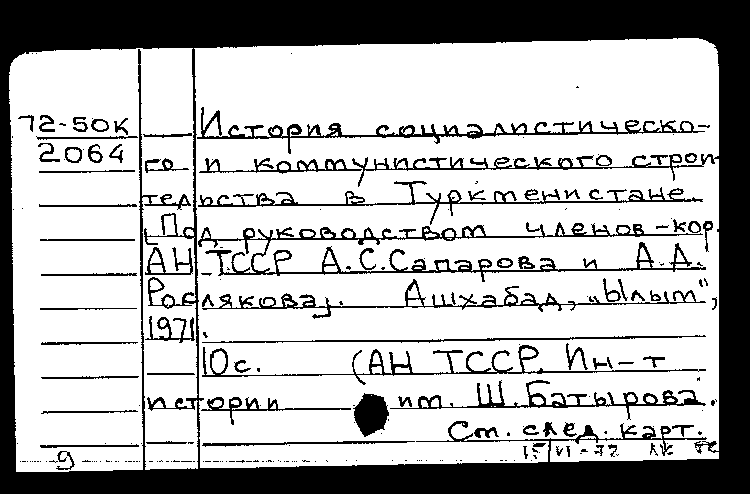 72-50К История социалистическо-
2064 го и коммунистического строи-
тельства в Туркменистане.
[Под руководством членов-кор.
АН ТССР А.С.Сапарова и А.А.
Рослякова]. Ашхабад, „Ылым",
1971.
10с. (АН ТССР. Ин-т
истории им. Ш.Батырова.
См. след. карт.
9 15/VI-72